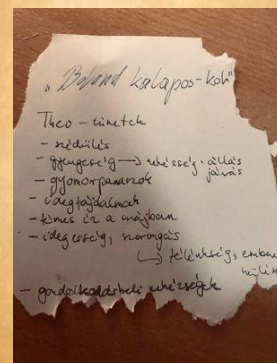 "Bolond kalapos-kór"
Theo – tünetek
– szédülés
– gyengeség → nehézség · állás
járás
– gyomorpanaszok
– idegfájdalmak
– fémes íz a szájban
– idegesség, szorongás
↳ félénkség, ember
– gondolkodásbeli nehézségek